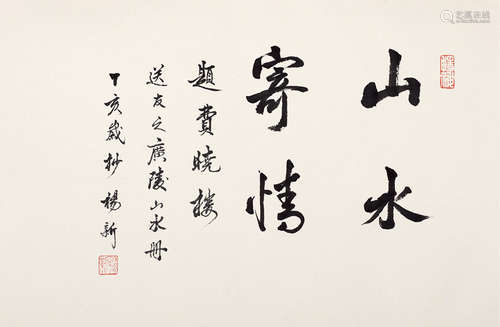 山水
寄情
題費曉樓
送友之廣陵山水冊
丁亥歲杪楊新